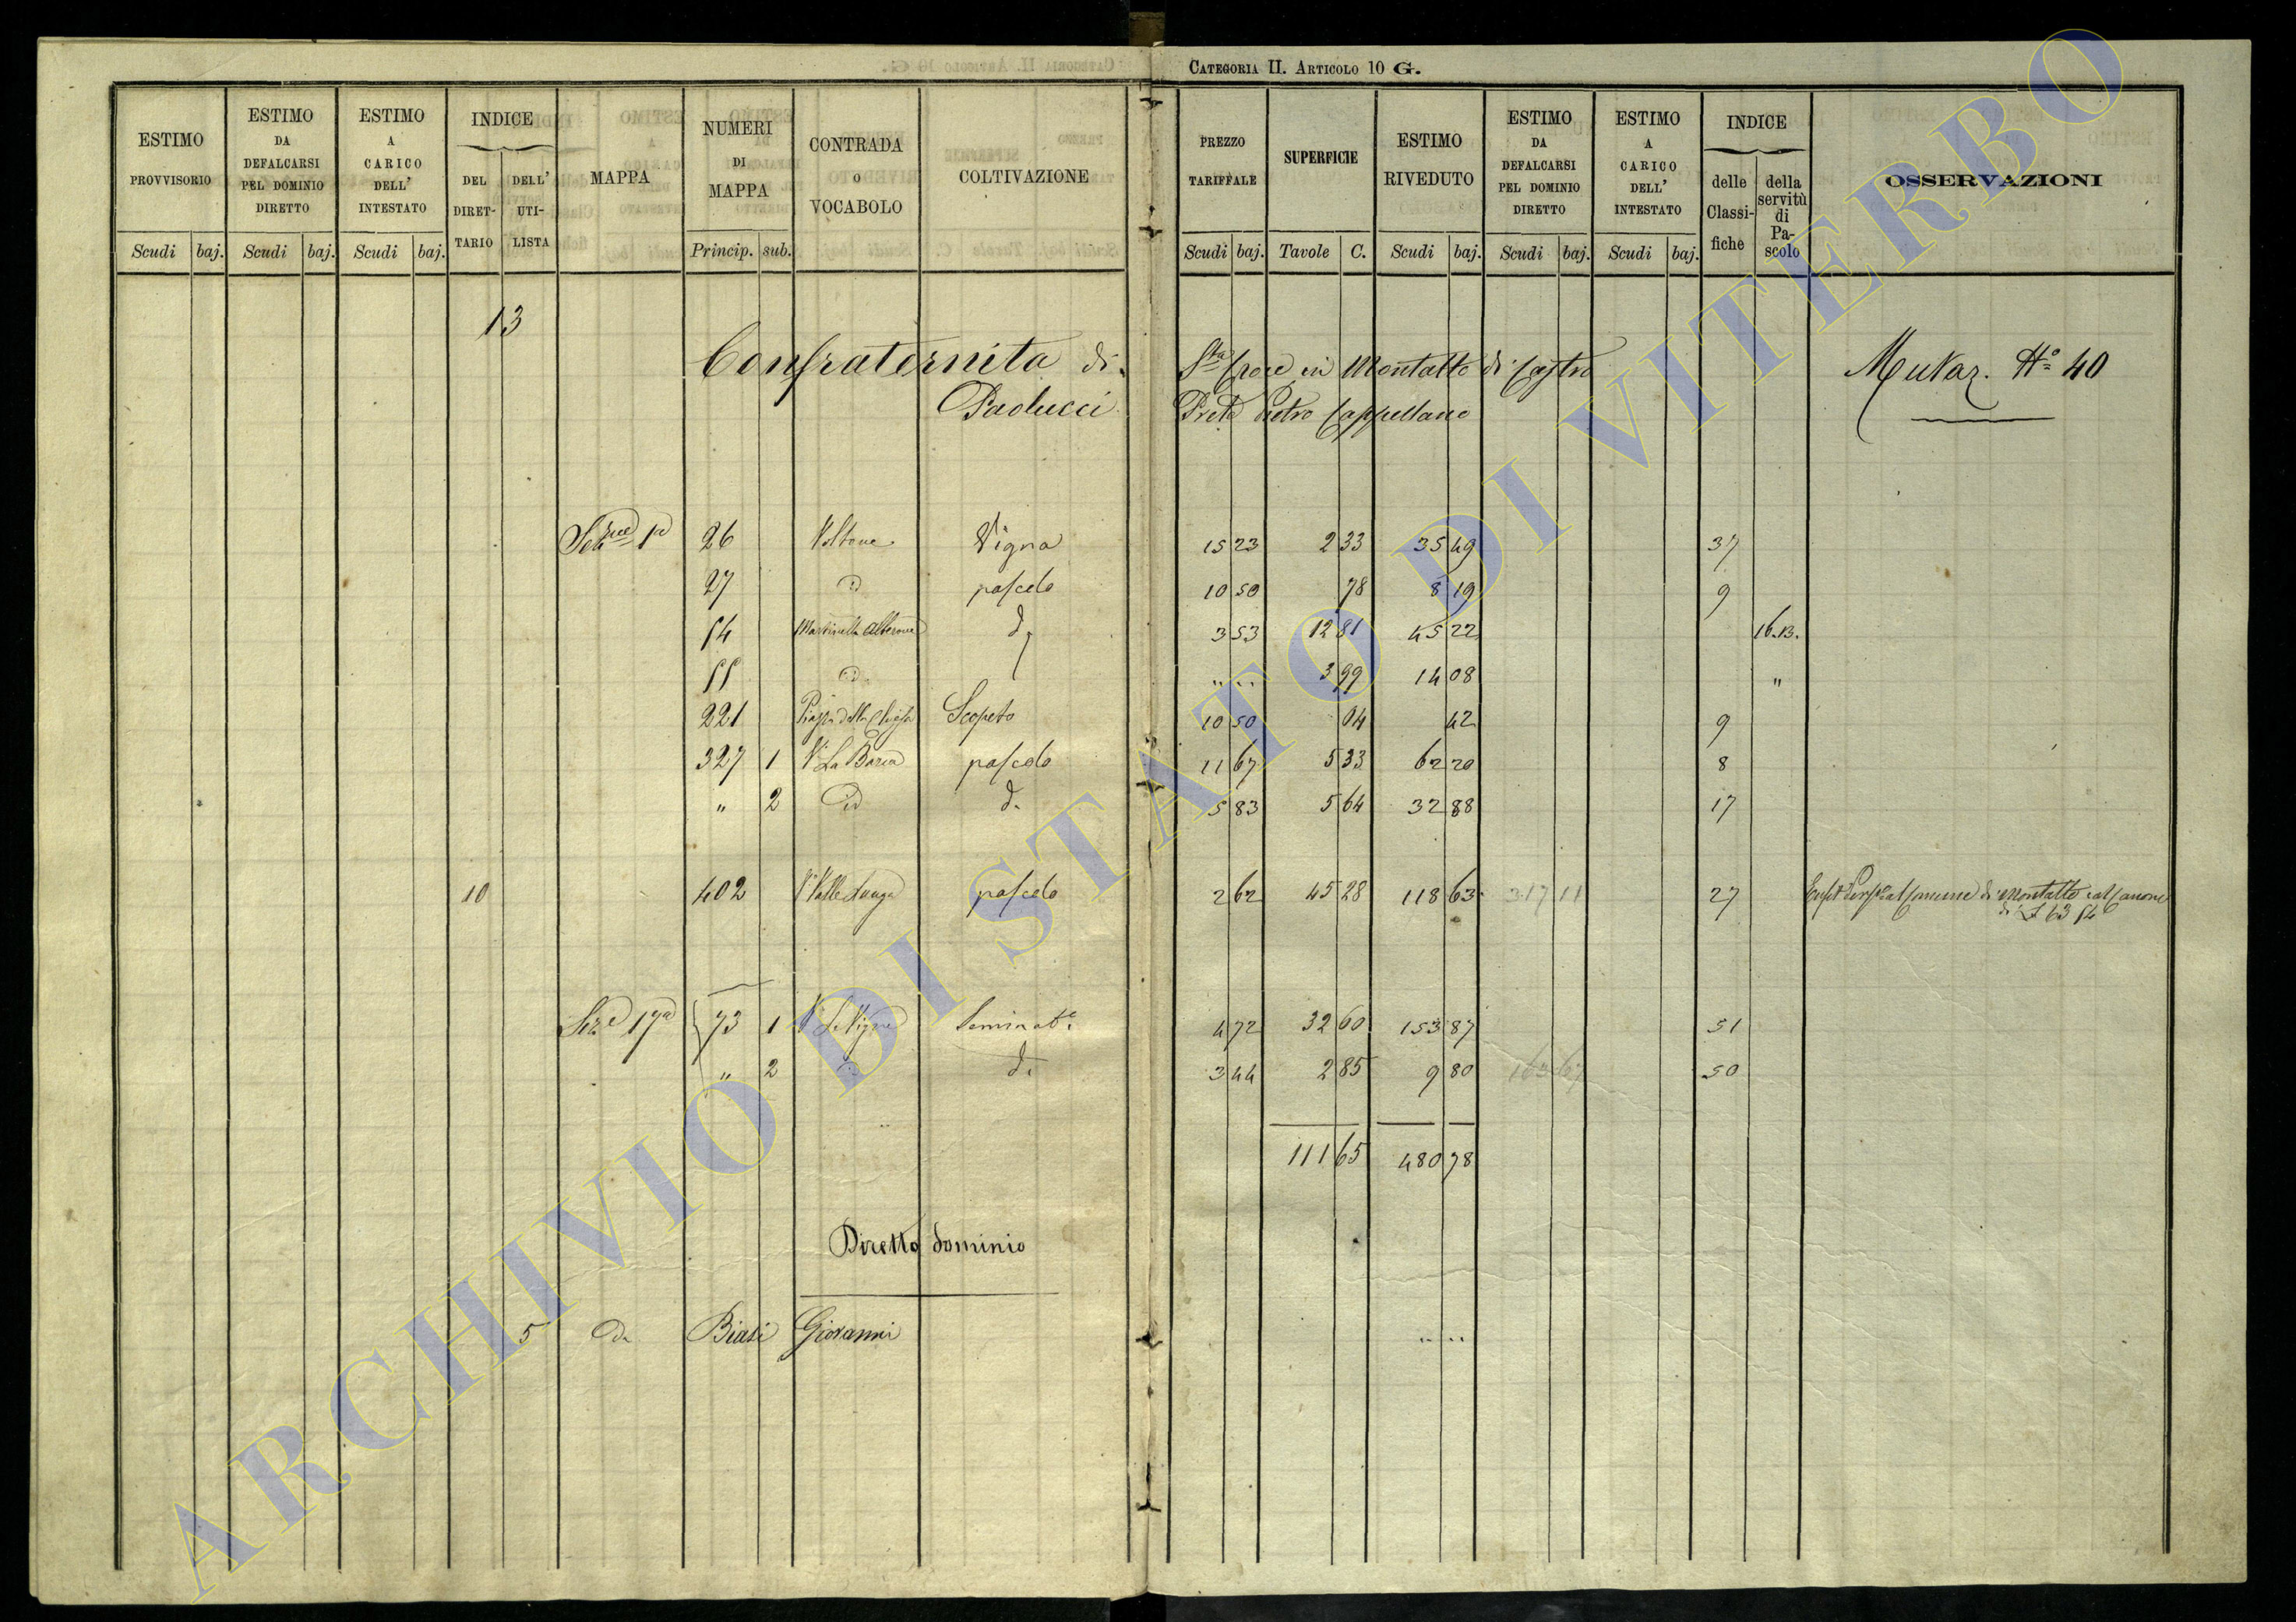 CATEGORIA II. ARTICOLO 10 G.
ESTIMO PROVVISORIO | ESTIMO DA DEFALCARSI PEL DOMINIO DIRETTO | ESTIMO A CARICO DELL' INTESTATO | INDICE DEL DIRETTARIO | DELL' UTILISTA | MAPPA | NUMERI DI MAPPA | CONTRADA O VOCABOLO | COLTIVAZIONE | PREZZO TARIFFALE | SUPERFICIE | ESTIMO RIVEDUTO | ESTIMO DA DEFALCARSI PEL DOMINIO DIRETTO | ESTIMO A CARICO DELL' INTESTATO | INDICE delle Classifiche | della servitù di Pascolo | OSSERVAZIONI
Scudi baj. Scudi baj. Scudi baj. Princip. sub. Scudi baj. Tavole C. Scudi baj. Scudi baj. Scudi baj.
13
Confraternita di Sta Croce in Montalto di Castro Nº 40
Paolucci Prete Pietro Cappellano
Sezne 1a 26 Voltone Vigna 15 23 2 33 35 49 37
27 id pascolo 10 50 78 8 19 9
54 Martinella d. 3 53 12 81 45 22 16.13.
55 id " " 3 99 14 08 "
221 Piazza della Chiesa Scopeto 10 50 04 42 9
327 1 pascolo 11 67 5 33 62 20 8
" 2 id d. 5 83 5 64 32 88 17
10 402 Valle Lunga pascolo 2 62 45 28 118 63 317 11 27 al Comune di Montalto
di 63 54
Seze 17a 73 1 Le Vigne Seminato 4 72 32 60 153 87 51
" 2 d. 3 44 2 85 9 80 163 67 50
111 65 480 78
Diretto dominio
5 Biasi Giovanni " "
ARCHIVIO DI STATO DI VITERBO